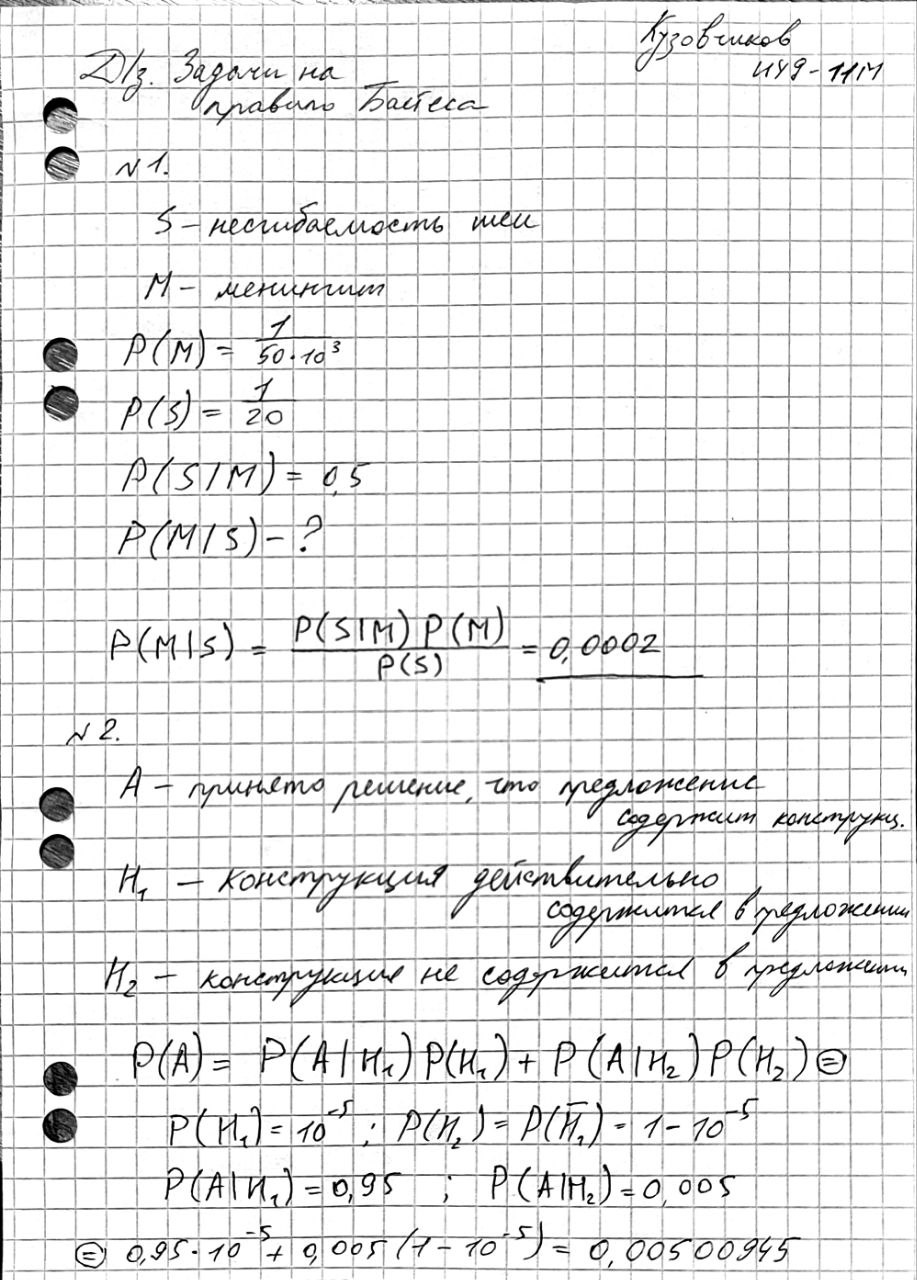 Кузовчиков
ИУ9-11М
Д/з. Задачи на
правило Байеса
№1.
S – несгибаемость шеи
M – менингит
P(M) = 1/(50·10³)
P(S) = 1/20
P(S|M) = 0,5
P(M|S) – ?
P(M|S) = P(S|M) P(M) / P(S) = 0,0002
№2.
A – принято решение, что предложение
содержит конструкц.
H₁ – конструкция действительно
содержится в предложении
H₂ – конструкция не содержится в предложении
P(A) = P(A|H₁) P(H₁) + P(A|H₂) P(H₂) ⊜
P(H₁) = 10⁻⁵ ; P(H₂) = P(H̅₁) = 1 – 10⁻⁵
P(A|H₁) = 0,95 ; P(A|H₂) = 0,005
⊜ 0,95·10⁻⁵ + 0,005 (1 – 10⁻⁵) = 0,00500945